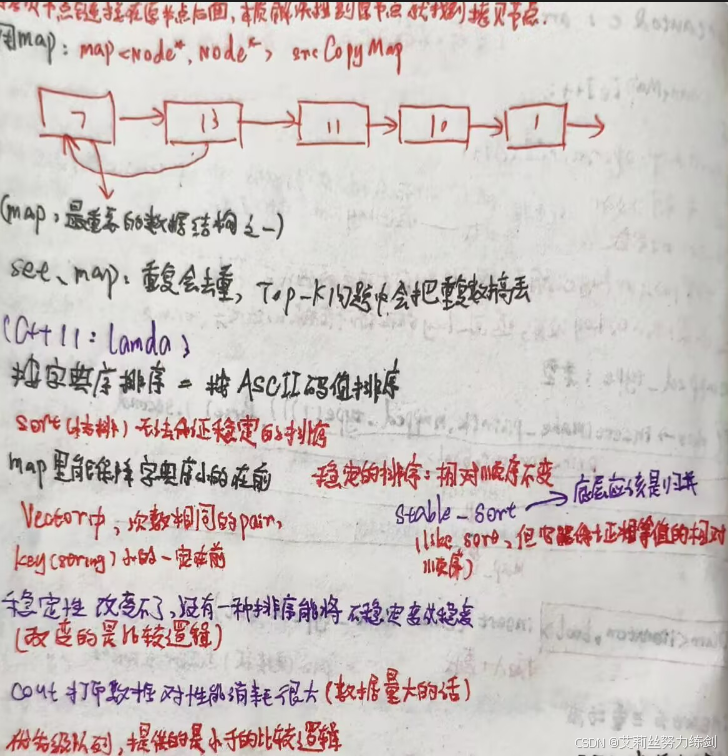 节点创建拷贝在原节点后面,本质解决找到原节点就找到拷贝节点.
用map:map<Node*, Node*> srcCopyMap
7 13 11 10 1
(map:最重要的数据结构之一)
set、map:重复会去重,Top-K问题中会把重复数搞丢
(C++11:lamda)
按字典序排序 = 按ASCII码值排序
sort(快排)无法保证稳定的排序
map里能保障字典序小的在前
稳定的排序:相对顺序不变
Vector中,次数相同的pair,
stable_sort → 底层应该是归并
key(string)小的一定在前
(like sort,但它能保证相等值的相对
顺序)
稳定性改变不了,没有一种排序能将不稳定变成稳定
(改变的是比较逻辑)
cout打印数据对性能消耗很大(数据量大的话)
优先级队列,提供的是小于的比较逻辑
CSDN @艾莉丝努力练剑